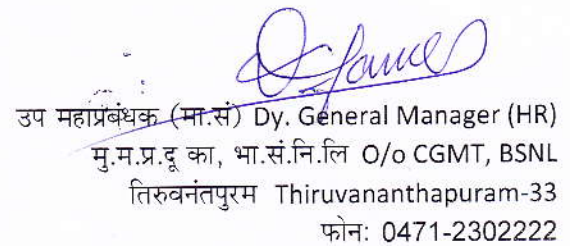 उप महाप्रबंधक (मा.सं) Dy. General Manager (HR)
मु.म.प्र.दू का, भा.सं.नि.लि O/o CGMT, BSNL
तिरुवनंतपुरम Thiruvananthapuram-33
फोन: 0471-2302222